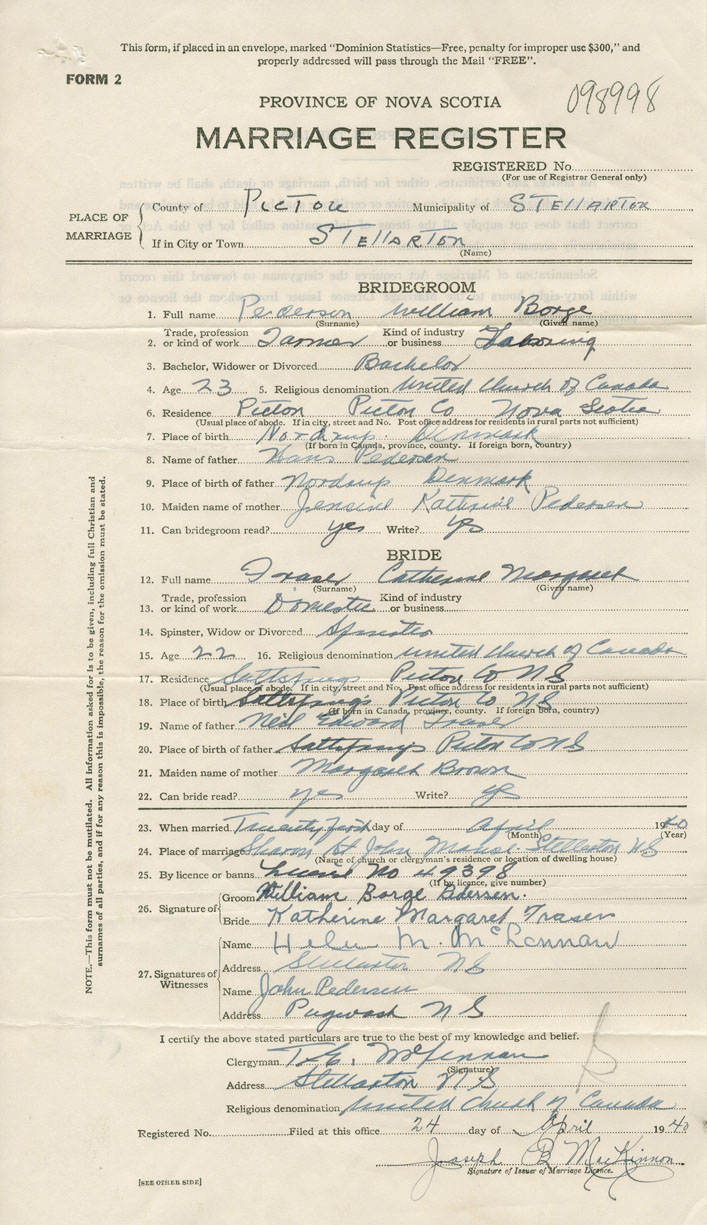 This form, if placed in an envelope, marked "Dominion Statistics—Free, penalty for improper use $300," and
properly addressed will pass through the Mail "FREE".
FORM 2
098998
PROVINCE OF NOVA SCOTIA
MARRIAGE REGISTER
REGISTERED No.
(For use of Registrar General only)
PLACE OF MARRIAGE
County of PICTOU Municipality of STELLARTON
If in City or Town STELLARTON
(Name)
BRIDEGROOM
1. Full name Pedersen William Borge
(Surname) (Given name)
2. Trade, profession or kind of work Farmer Kind of industry or business Laboring
3. Bachelor, Widower or Divorced Bachelor
4. Age 23 5. Religious denomination United Church of Canada
6. Residence Pictou Pictou Co Nova Scotia
(Usual place of abode. If in city, street and No. Post office address for residents in rural parts not sufficient)
7. Place of birth Nordrup Denmark
(If born in Canada, province, county. If foreign born, country)
8. Name of father Hans Pedersen
9. Place of birth of father Nordrup Denmark
10. Maiden name of mother Jensine Kathrine Pedersen
11. Can bridegroom read? yes Write? yes
BRIDE
12. Full name Fraser Catherine Margaret
(Surname) (Given name)
13. Trade, profession or kind of work Domestic Kind of industry or business
14. Spinster, Widow or Divorced Spinster
15. Age 22 16. Religious denomination United Church of Canada
17. Residence Saltsprings Pictou Co NS
(Usual place of abode. If in city, street and No. Post office address for residents in rural parts not sufficient)
18. Place of birth Saltsprings Pictou Co NS
(If born in Canada, province, county. If foreign born, country)
19. Name of father Neil Edward Fraser
20. Place of birth of father Saltsprings Pictou Co NS
21. Maiden name of mother Margaret Brown
22. Can bride read? yes Write? yes
23. When married Twenty first day of April 1940
(Month) (Year)
24. Place of marriage Sharon St John Manse Stellarton NS
(Name of church or clergyman's residence or location of dwelling house)
25. By licence or banns License No 49398
(If by licence, give number)
26. Signature of
Groom William Borge Pedersen.
Bride Katherine Margaret Fraser
27. Signatures of Witnesses
Name Helen M. McLennan
Address Stellarton NS
Name John Pedersen
Address Pugwash NS
I certify the above stated particulars are true to the best of my knowledge and belief.
Clergyman McLennan
(Signature)
Address Stellarton NS
Religious denomination United Church of Canada
Registered No. Filed at this office 24 day of April 1940
Joseph B MacKinnon
Signature of Issuer of Marriage Licence.
[SEE OTHER SIDE]
NOTE.—This form must not be mutilated. All information asked for is to be given, including full Christian and
surnames of all parties, and if for any reason this is impossible, the reason for the omission must be stated.